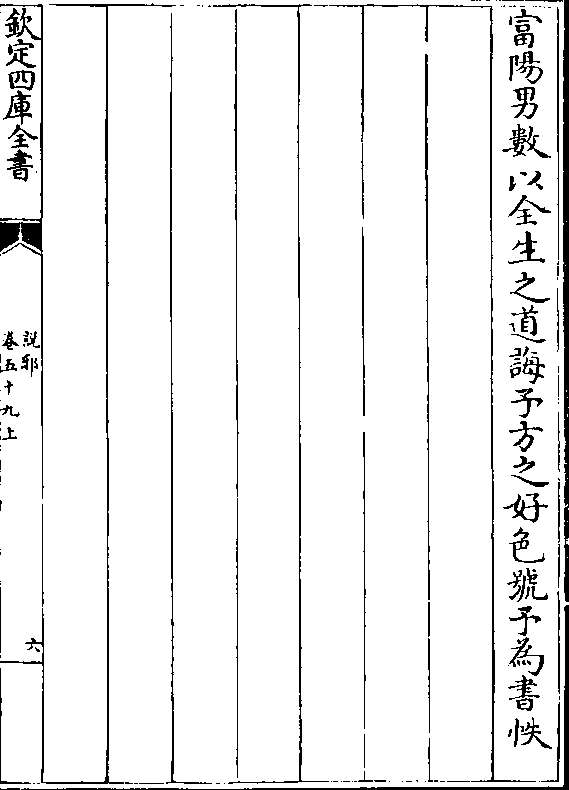 富陽男數以全生之道誨予方之好色號予為書帙
欽定四庫全書
說郛
卷五十九上
六